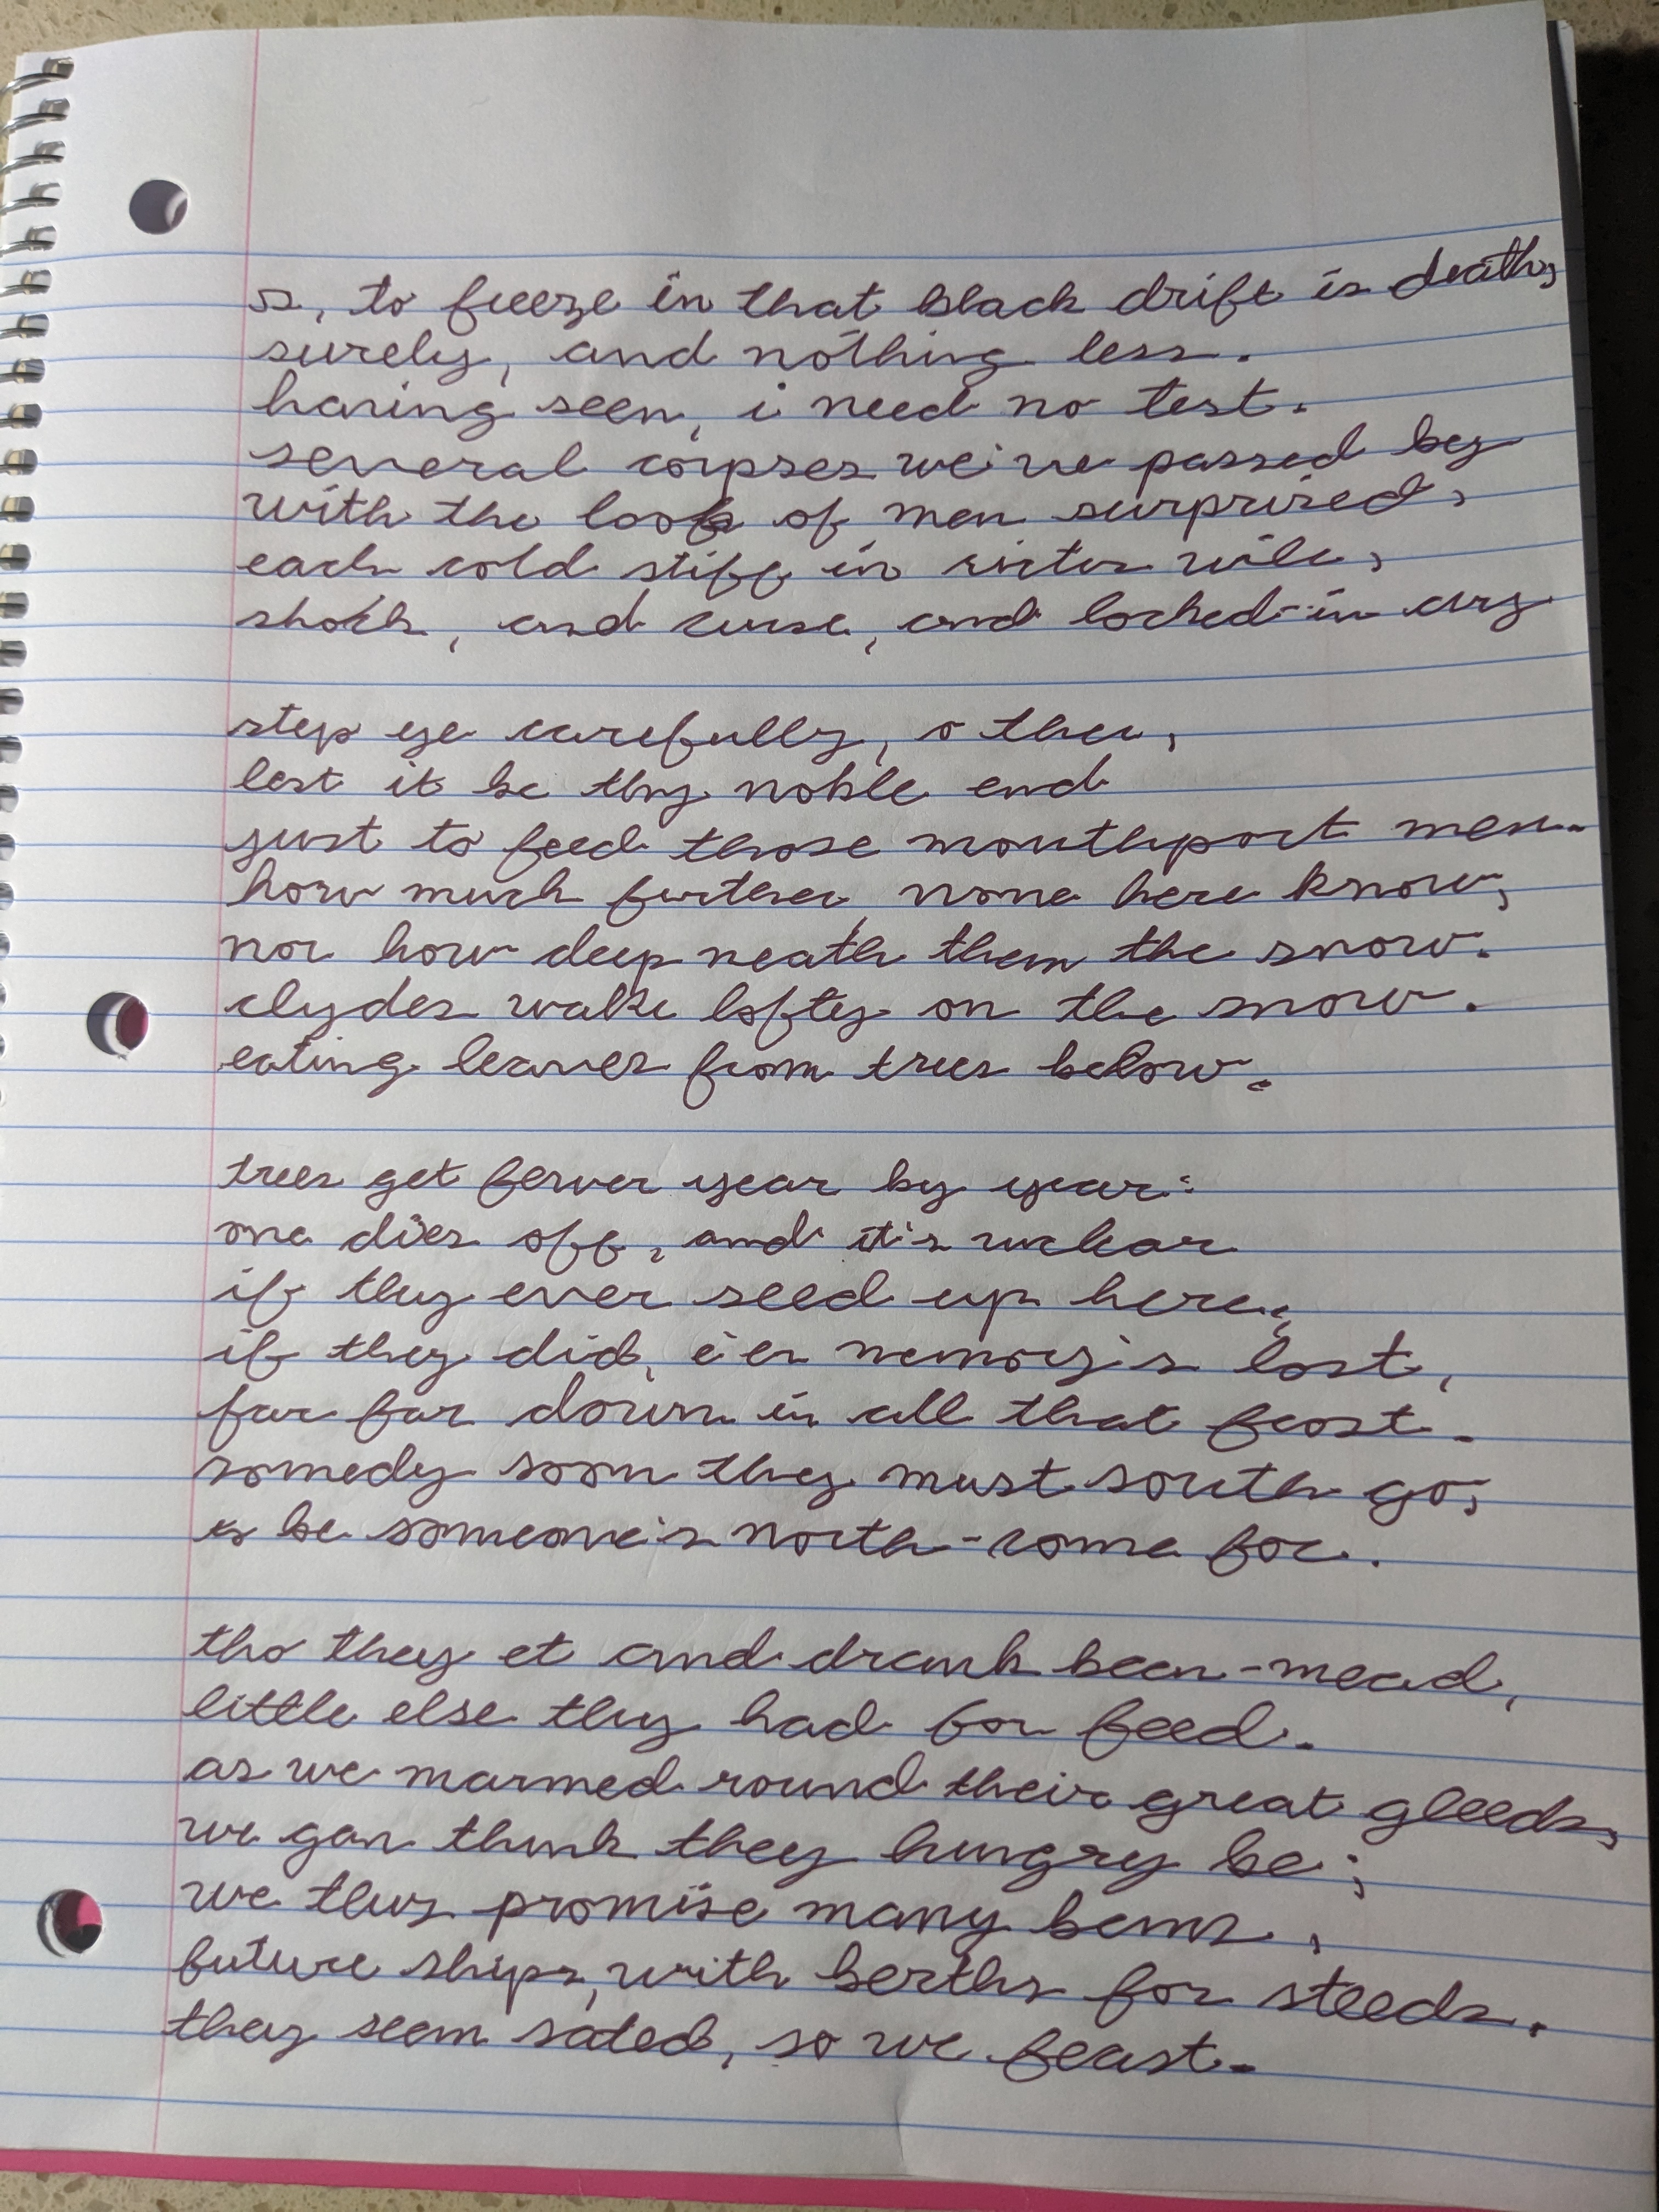 so, to freeze in that black drift is death,
surely, and nothing less.
having seen, i need no test.
several corpses we've passed by
with the look of men surprised,
each cold stiff in
shock, and curse, and locked-in cry
step ye carefully, o thee,
lest it be thy noble end
just to feed those mouthport men.
how much further, none here know,
nor how deep neath them the snow.
clydes walk lofty on the snow.
eating leaves from trees below.
trees get fewer year by year:
one dies off, and it's unclear
if they ever seed up here,
if they did, e'en memory's lost,
far far down in all that frost.
somedy soon they must south go,
or be someone's north-come foe.
tho they et and drank been-mead,
little else they had for feed.
as we marmed round their great gleeds,
we gan think they hungry be;
we thus promise many
future ships, with berths for steeds.
they seem sated, so we feast.